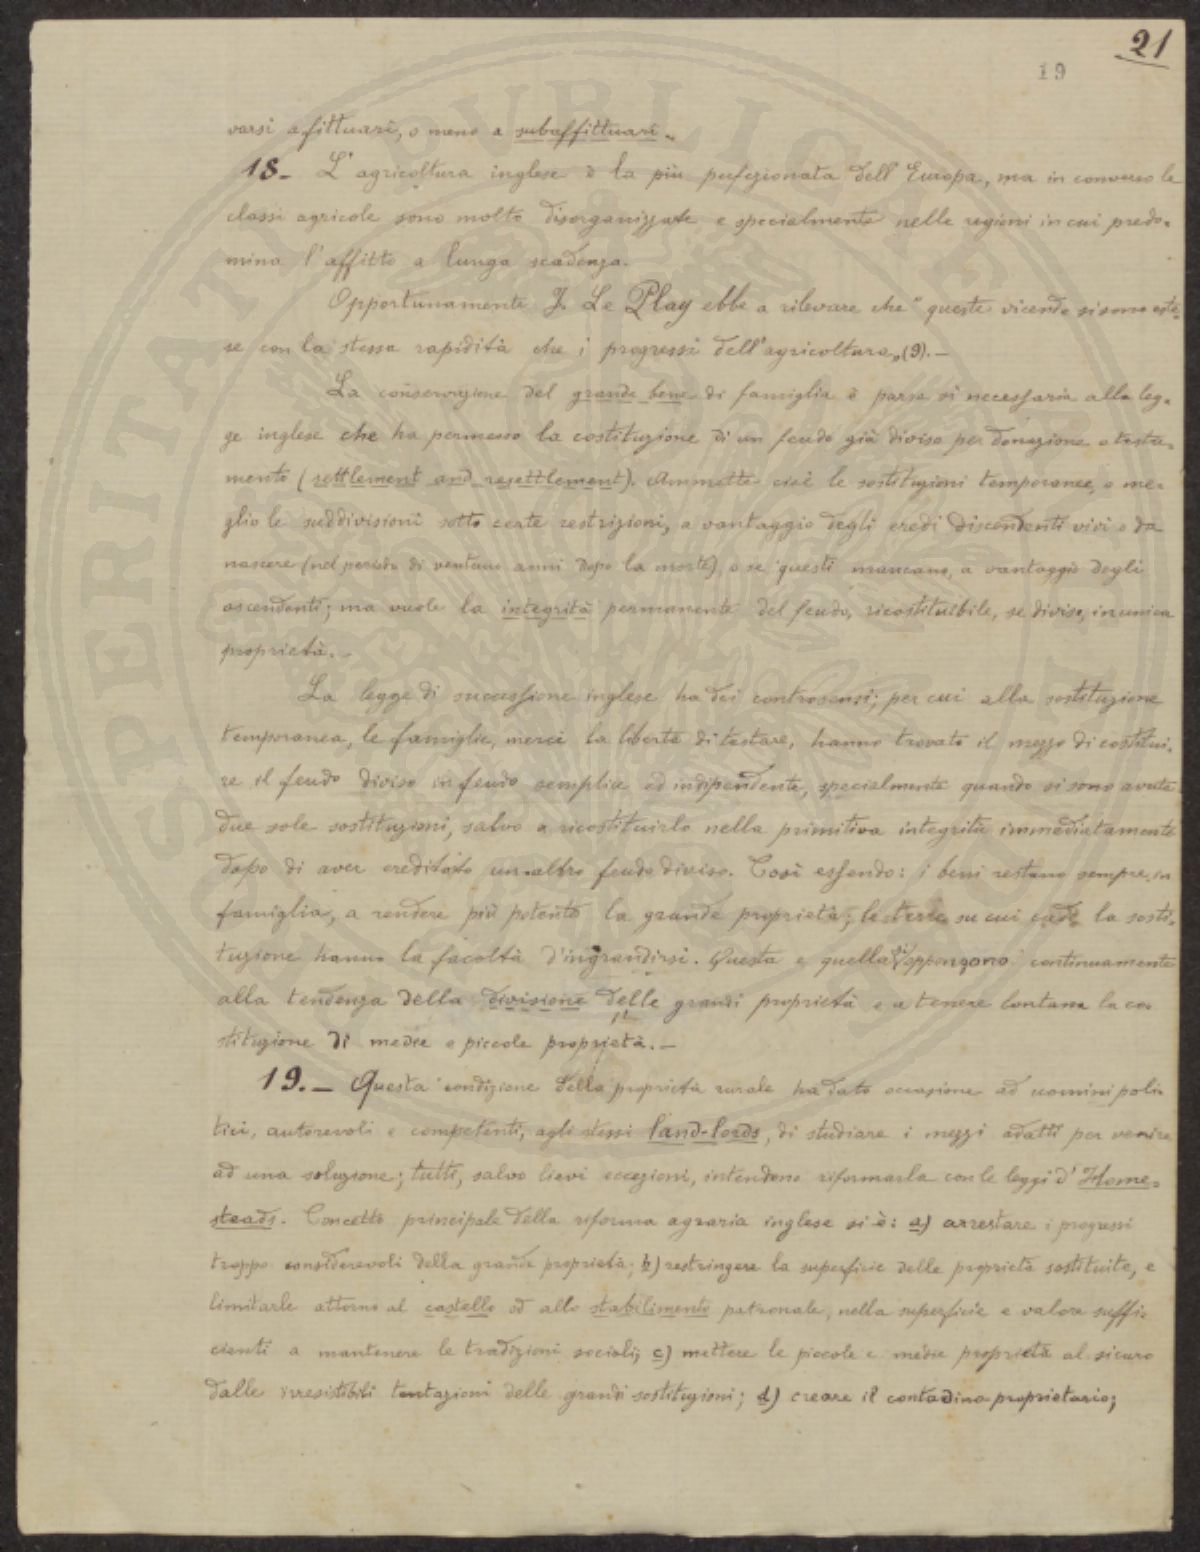 21
19
varsi a fittuari, o meno a subaffittuari.
18. L'agricoltura inglese è la più perfezionata dell'Europa, ma in converso le
classi agricole sono molto disorganizzate e specialmente nelle regioni in cui predo-
mina l'affitto a lunga scadenza.
Opportunamente F. Le Play ebbe a rilevare che "queste vicende si sono este-
se con la stessa rapidità che i progressi dell'agricoltura„ (9). —
La conservazione del grande bene di famiglia è parsa sì necessaria alla leg-
ge inglese che ha permesso la costituzione di un feudo già diviso per donazione o testa-
mento (settlement and resettlement). Ammette cioè le sostituzioni temporanee, o me-
glio le suddivisioni sotto certe restrizioni, a vantaggio degli eredi discendenti vivi o da
nascere (nel periodo di ventuno anni dopo la morte), o se questi mancano, a vantaggio degli
ascendenti; ma vuole la integrità permanente del feudo, ricostituibile, se diviso, in unica
proprietà. —
La legge di successione inglese ha dei controsensi; per cui alla sostituzione
temporanea, le famiglie, mercè la libertà di testare, hanno trovato il mezzo di costitui-
re il feudo diviso in feudo semplice ed indipendente, specialmente quando si sono avute
due sole sostituzioni, salvo a ricostituirlo nella primitiva integrità immediatamente
dopo di aver ereditato un altro feudo diviso. Così essendo: i beni restano sempre in
famiglia, a rendere più potente la grande proprietà; le terre su cui cade la sosti-
tuzione hanno la facoltà d'ingrandirsi. Questa e quella si oppongono continuamente
alla tendenza della divisione delle grandi proprietà e a tenere lontana la co-
stituzione di medie e piccole proprietà. —
19. — Questa condizione della proprietà rurale ha dato occasione ad uomini poli-
tici, autorevoli e competenti, agli stessi land-lords, di studiare i mezzi adatti per venire
ad una soluzione; tutti, salvo lievi eccezioni, intendono riformarla con le leggi d'Home-
steads. Concetto principale della riforma agraria inglese si è: a) arrestare i progressi
troppo considerevoli della grande proprietà; b) restringere la superficie delle proprietà sostituite, e
limitarle attorno al castello od allo stabilimento patronale, nella superficie e valore suffi-
cienti a mantenere le tradizioni sociali; c) mettere le piccole e medie proprietà al sicuro
dalle irresistibili tentazioni delle grandi sostituzioni; d) creare il contadino proprietario;